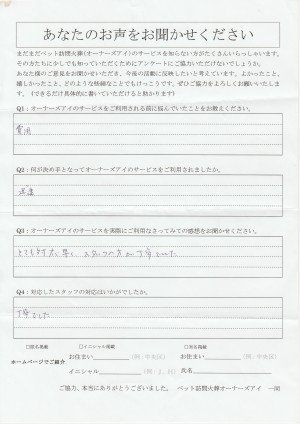 あなたのお声をお聞かせください
まだまだペット訪問火葬(オーナーズアイ)のサービスを知らない方がたくさんいらっしゃいます。
その方たちに少しでも知っていただくためにアンケートにご協力いただけないでしょうか。
あなた様のご意見をお聞かせいただき、今後の活動に反映したいと考えています。よかったこと、
嬉しかったこと、どのような些細なことでもけっこうです。ぜひご協力をよろしくお願いいたします。
(できるだけ具体的に書いていただけると助かります)
Q1：オーナーズアイのサービスをご利用される前に悩んでいたことをお教えください。
費用
Q2：何が決め手となってオーナーズアイのサービスをご利用されましたか。
Q3：オーナーズアイのサービスを実際にご利用なさってみての感想をお聞かせください。
とても対応が早く スタッフの方も丁寧でした
Q4：対応したスタッフの対応はいかがでしたか。
丁寧でした
□匿名掲載 □イニシャル掲載 □実名掲載
ホームページでご紹介
お住まい (例：中央区) お住まい (例：中央区)
イニシャル (例：S.H) 氏名
ご協力、本当にありがとうございました。 ペット訪問火葬オーナーズアイ 一同